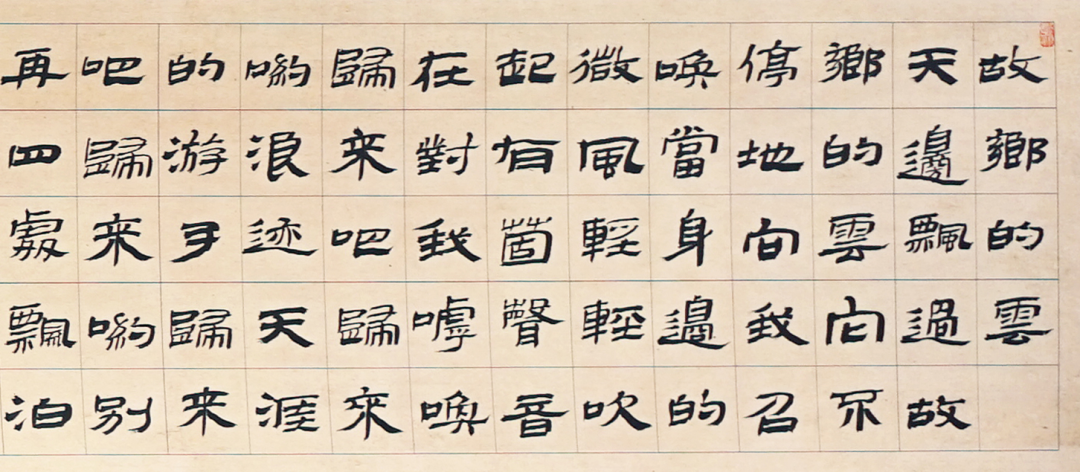 故鄉的雲
天邊飄過故
鄉的雲它不
停地向我召
喚當身邊的
微風輕輕吹
起有箇聲音
在對我嘑喚
歸来吧歸来
喲浪迹天涯
的游子歸来
吧歸来喲别
再四處飄泊